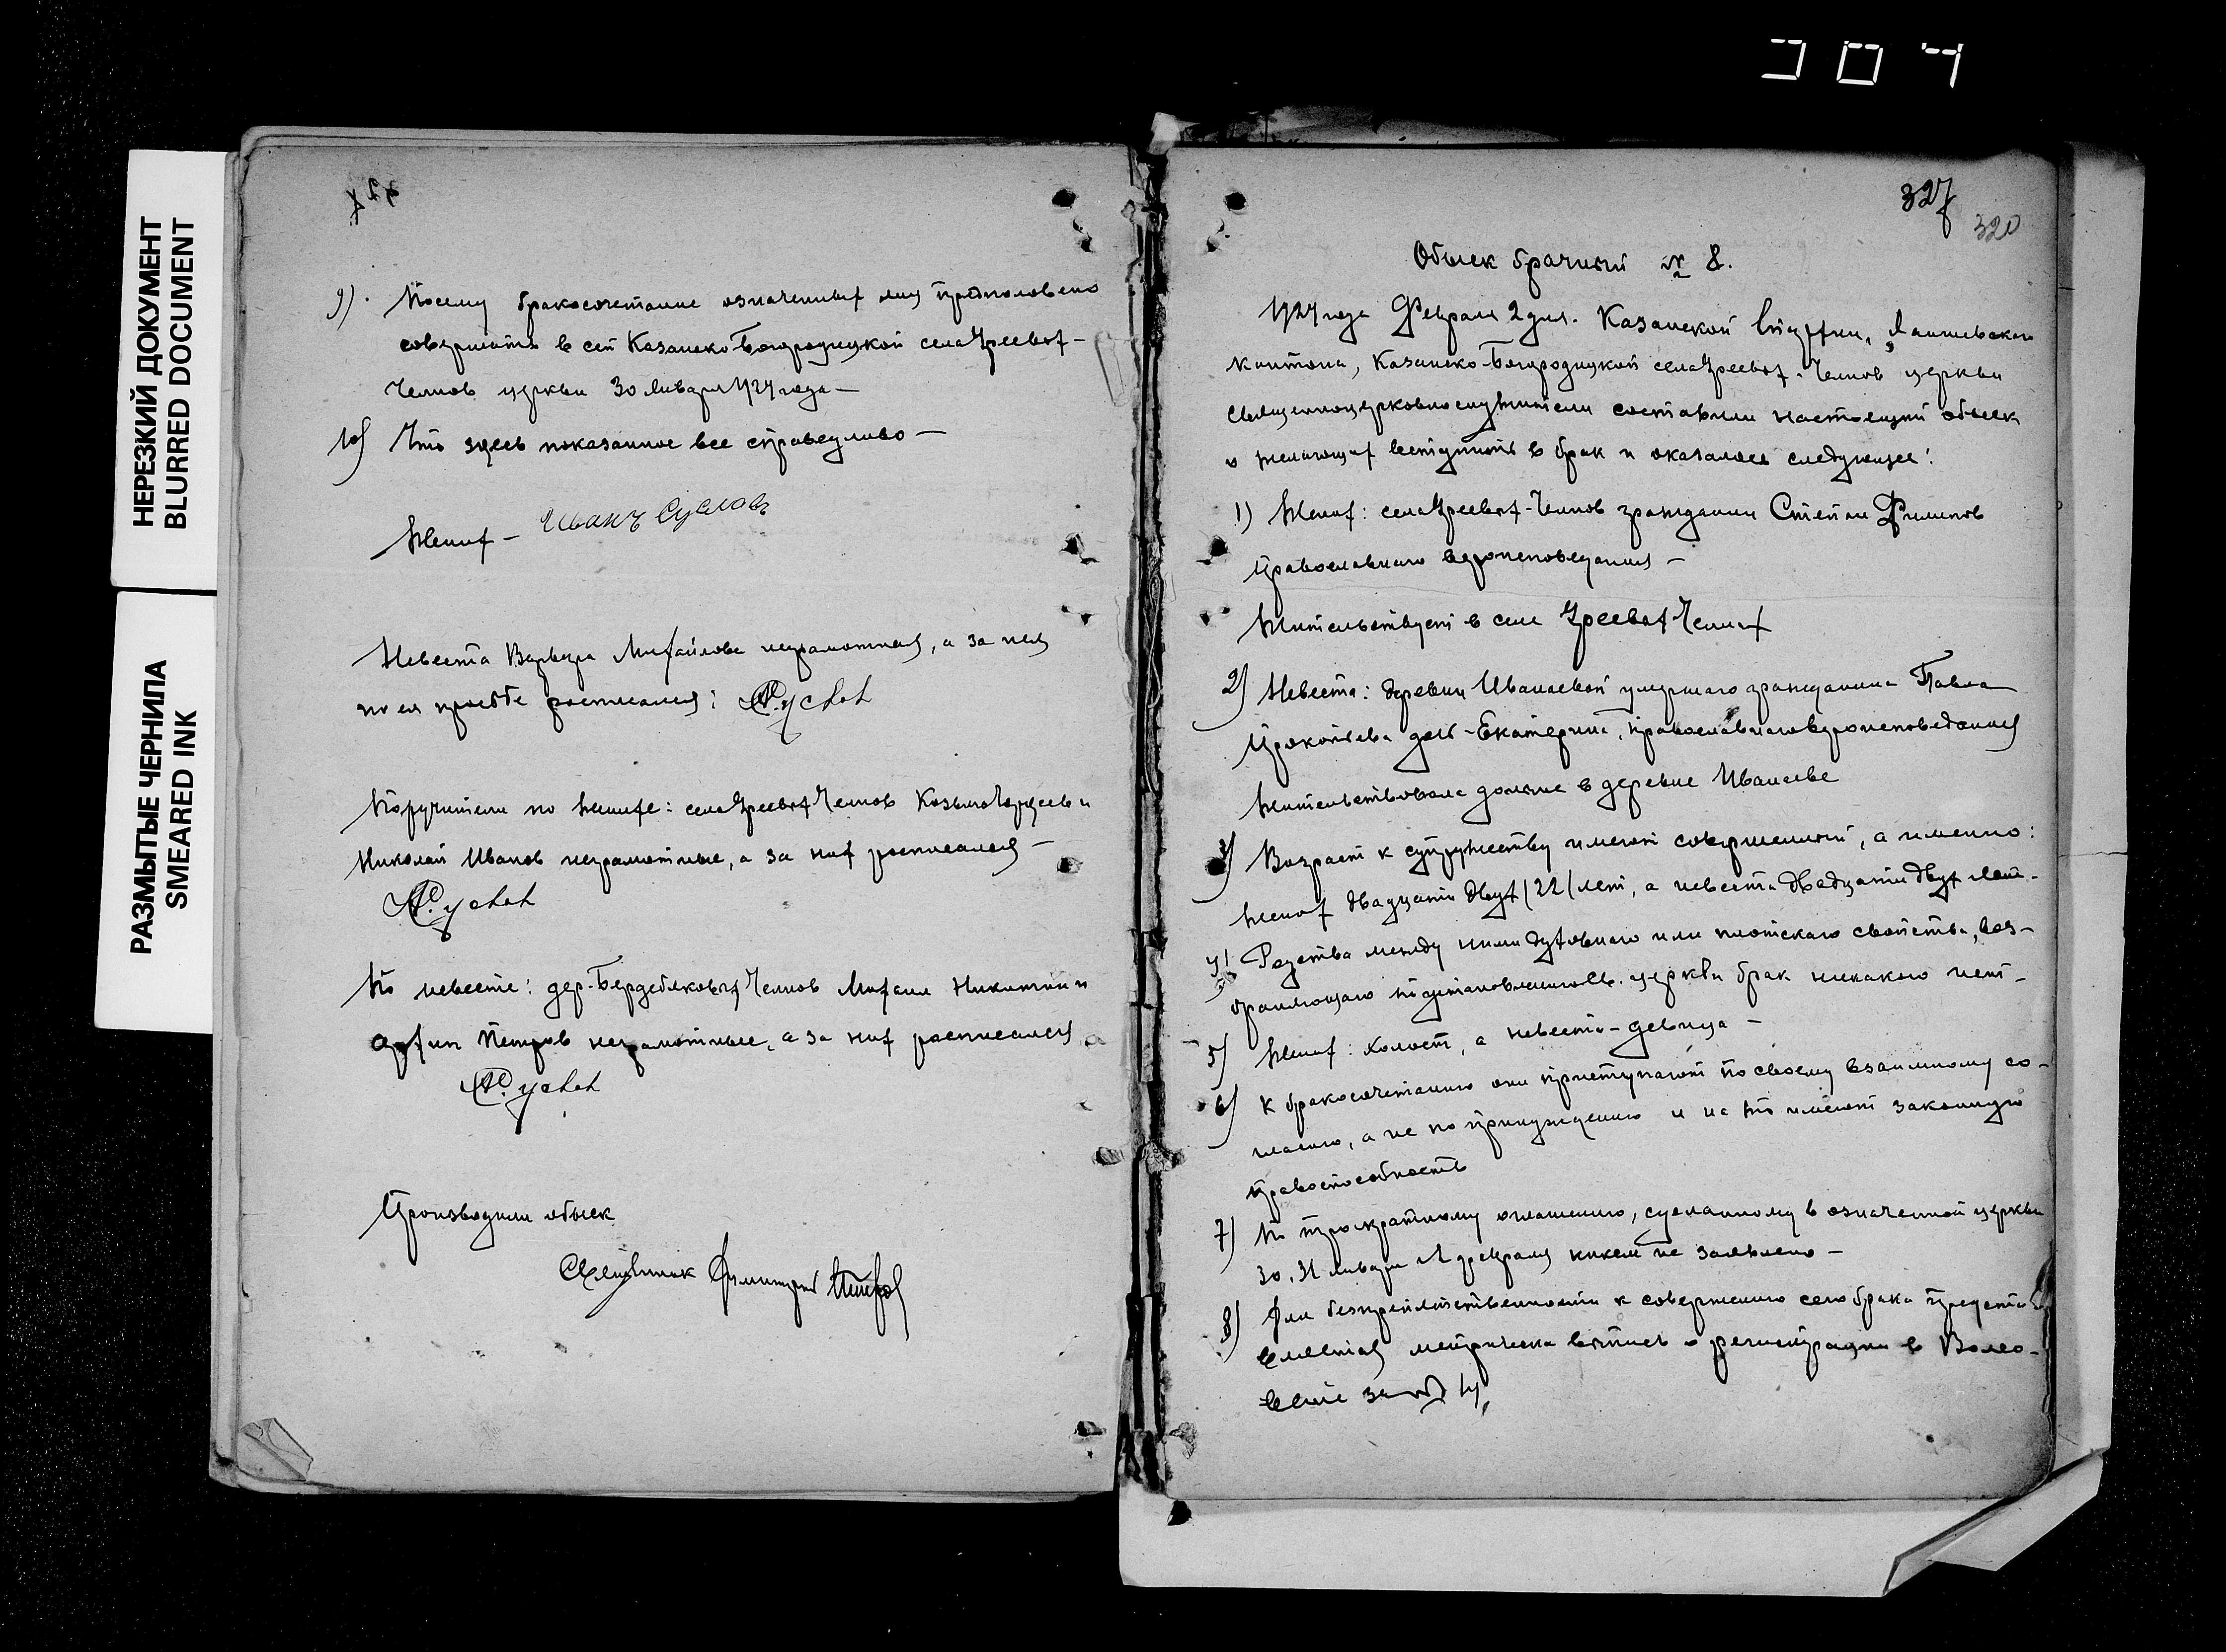 304
НЕРЕЗКИЙ ДОКУМЕНТ
BLURRED DOCUMENT
РАЗМЫТЫЕ ЧЕРНИЛА
SMEARED INK
9). Посему бракосочетание означенных лиц предположено
совершить в сей Казанско Богородицкой села Уреевых-
Челнов церкви 30 Января 1924 года —
10) Что здесь показанное все справедливо —
Жених — Иванъ Сусловъ
Невеста Варвара Михайлова неграмотная, а за нея
по ея просьбе росписался:
Поручители по женихе: села Уреевых Челнов Козьма и
Николай Иванов неграмотные, а за них росписался —
По невесте: дер. Бердебяковых Челнов Михаил Никитин и
Архип Петров неграмотные, а за них росписался
Производили обыск
Священник Димитрий
327
320
Обыск брачный № 8.
1924 года Февраля 2 дня. Казанской Лаишевского
кантона, Казанско-Богородицкой села Уреевых-Челнов церкви
священноцерковнослужители составили настоящий обыск
о желающих вступить в брак и оказалось следующее:
1) Жених: села Уреевых-Челнов гражданин Степан Филипов
православного вероисповедания —
Жительствует в селе Уреевых Челнах
2) Невеста: деревни Иванаевой умершаго гражданина Павла
Прокопьева дочь - Екатерина, православнаго вероисповедания
жительствовала доныне в деревне Иванаеве
3) Возраст к супружеству имеют совершенный, а именно:
жених двадцати двух (22) лет, а невеста двадцати двух лет.
4) Родства между ними духовнаго или плотскаго свойства, воз-
браняющаго по установлению св. церкви брак никакого нет —
5) Жених: холост, а невеста - девица —
6) К бракосочетанию они приступают по своему взаимному со-
гласию, а не по принуждению и на то имеют законную
правоспособность
7) По троекратному оглашению, сделанному в означенной церкви
30, 31 января и 2 февраля никем не заявлено —
8) Для безпрепятственности к совершению сего брака предста
вляется метрическа выпись о регистрации в Воло-
за № 14,